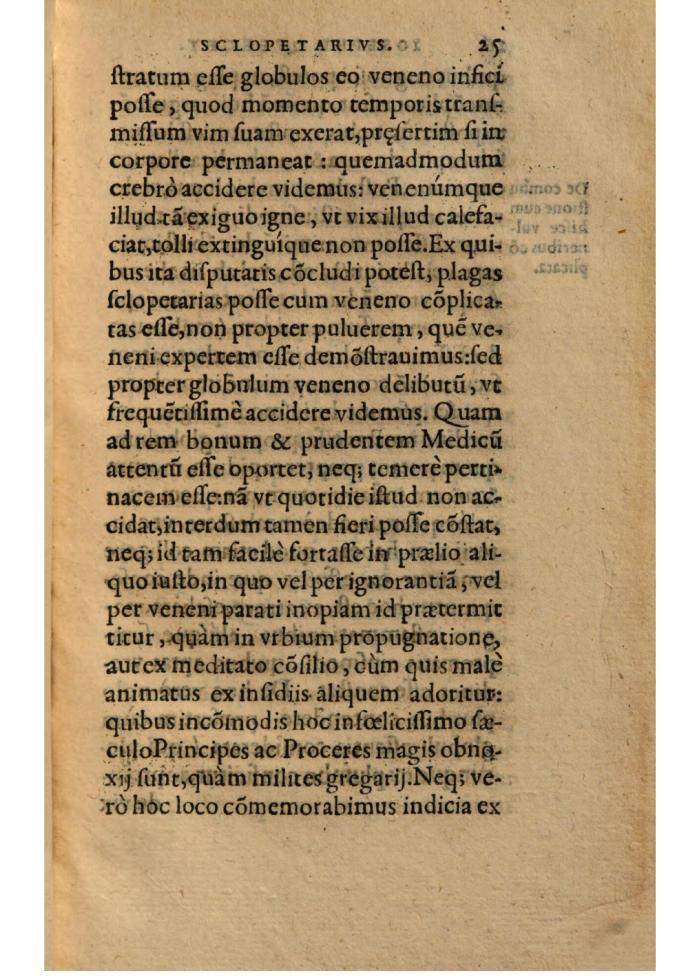 SCLOPETARIVS. 25
ſtratum eſſe globulos eo veneno infici
poſſe, quod momento temporis tranſ-
miſſum vim ſuam exerat, pręſertim ſi in
corpore permaneat : quemadmodum
crebrò accidere videmus: venenúmque
illud tã exiguo igne, vt vix illud calefa-
ciat, tolli extinguíque non poſſe. Ex qui-
bus ita diſputatis cõcludi poteſt, plagas
ſclopetarias poſſe cum veneno cõplica-
tas eſſe, non propter puluerem, quẽ ve-
neni expertem eſſe demõſtrauimus: ſed
propter globulum veneno delibutũ, vt
frequẽtiſſimè accidere videmus. Quam
ad rem bonum & prudentem Medicũ
attentũ eſſe oportet, neq; temerè perti-
nacem eſſe: nã vt quotidie iſtud non ac-
cidat, interdum tamen fieri poſſe cõſtat,
neq; id tam facilè fortaſſe in prælio ali-
quo iuſto, in quo vel per ignorantiã, vel
per veneni parati inopiam id prætermit
titur, quàm in vrbium propugnatione,
aut ex meditato cõſilio, cùm quis malè
animatus ex inſidiis aliquem adoritur:
quibus incõmodis hoc infœliciſſimo ſæ-
culo Principes ac Proceres magis obno-
xij ſunt, quàm milites gregarij. Neq; ve-
rò hoc loco cõmemorabimus indicia ex